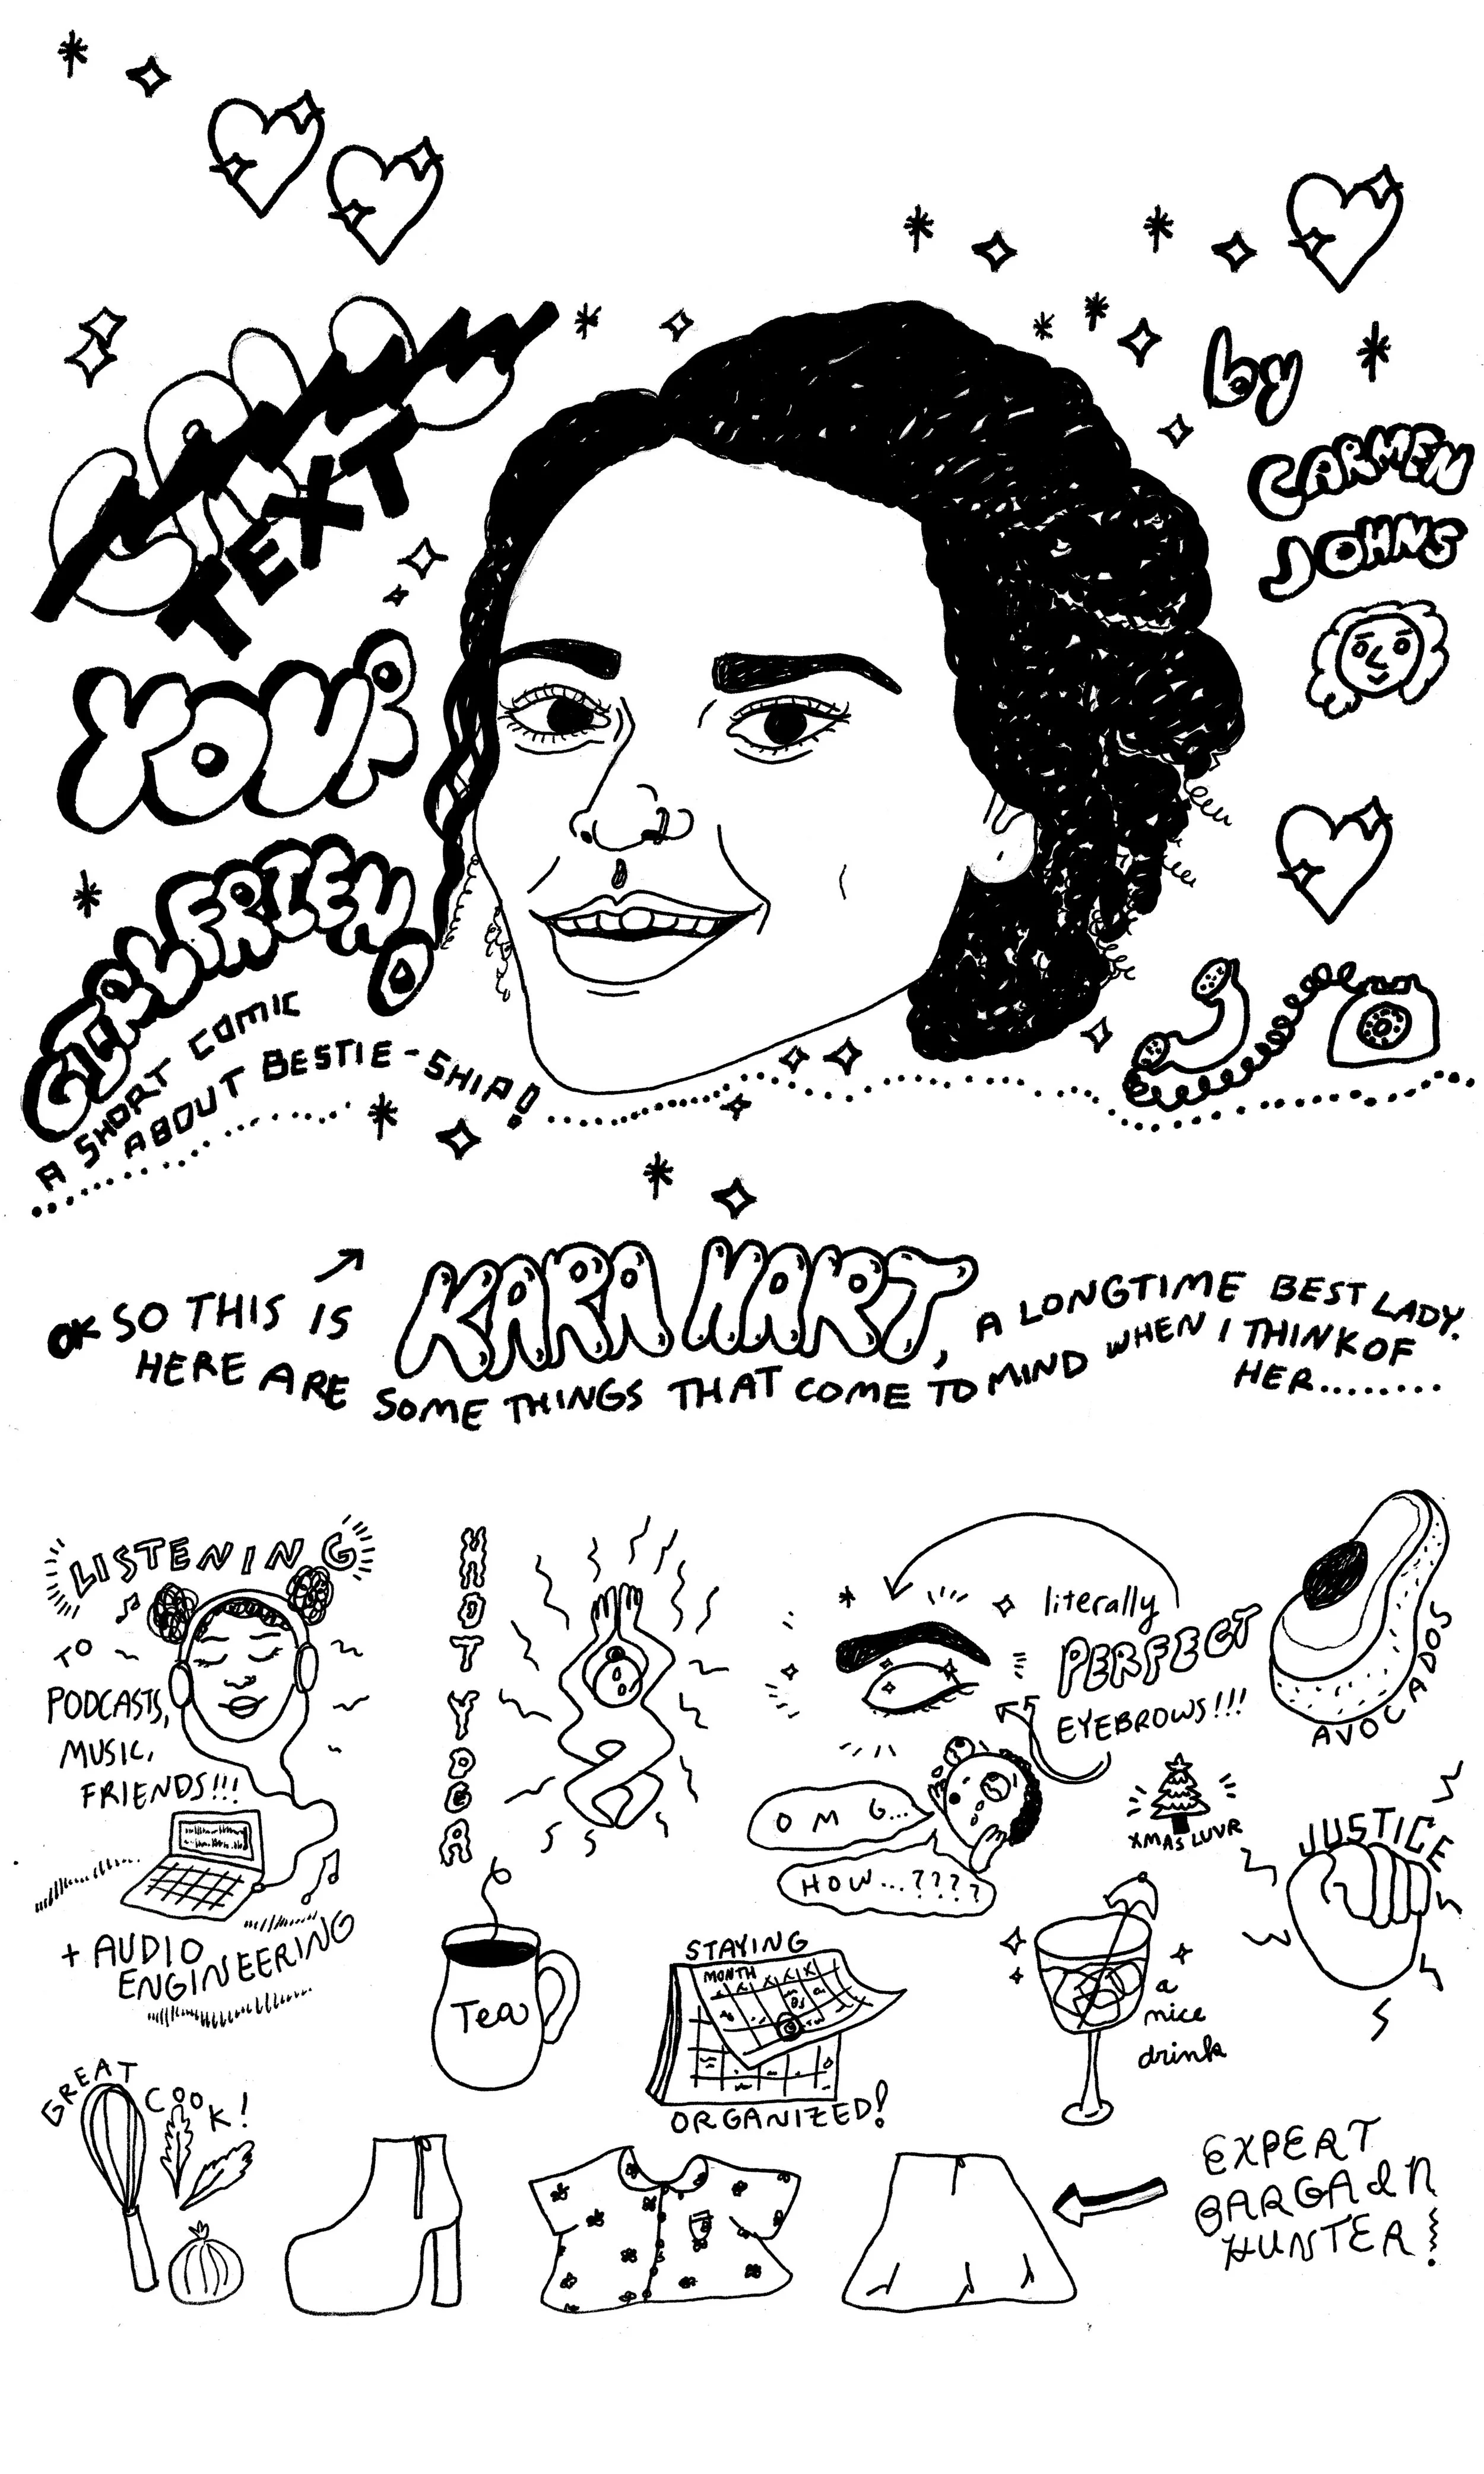 CALL
TEXT
YOUR
GIRLFRIEND
A SHORT COMIC
ABOUT BESTIE-SHIP!
by
CARMEN
JOHNS
OK SO THIS IS KARA HART, A LONGTIME BEST LADY.
HERE ARE SOME THINGS THAT COME TO MIND WHEN I THINK OF
HER........
LISTENING
TO
PODCASTS,
MUSIC,
FRIENDS!!!
+ AUDIO
ENGINEERING
HOT YOGA
literally
PERFECT
EYEBROWS!!!
OMG...
HOW...????
AVOCADOS
XMAS LUVR
JUSTICE
Tea
STAYING
MONTH
ORGANIZED!
a
nice
drink
GREAT
COOK!
EXPERT
BARGAIN
HUNTER!